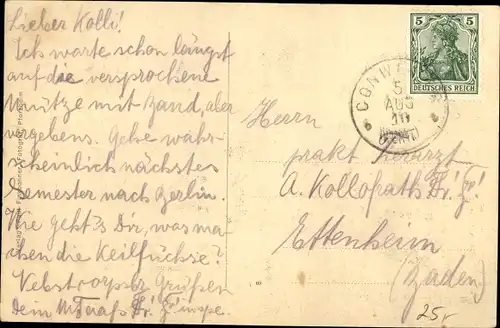 Lieber Kolli!
Ich warte schon längst
auf die versprochene
Mütze mit Band, aber
vergebens. Gehe wahr-
scheinlich nächstes
Semester nach Berlin.
Wie geht's Dir, was ma-
chen die Keilfüchse?
Grüßen
Dein
5 5
DEUTSCHES REICH
5
AUG
10
Herrn
prakt. Tierarzt
A. Kollofrath
Ettenheim
(Baden)
25,-
8